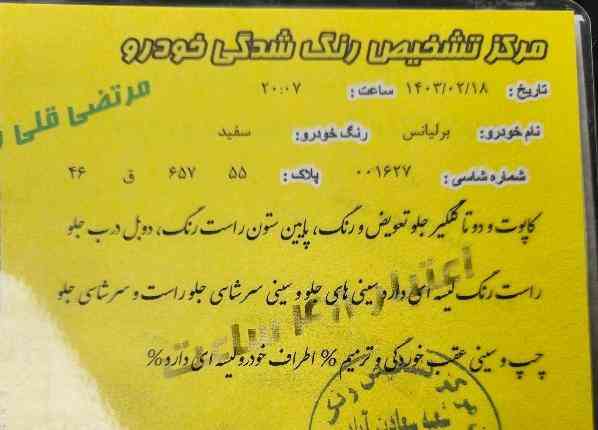 مرکز تشخیص رنگ شدگی خودرو
تاریخ: ۱۴۰۳/۰۲/۱۸ ساعت: ۲۰:۰۷
مرتضی قلی
نام خودرو: برلیانس رنگ خودرو: سفید
شماره شاسی: ۰۰۱۶۲۷ پلاک: ۵۵ ۶۵۷ ق ۴۶
کاپوت و دو تا گلگیر جلو تعویض و رنگ، پایین ستون راست رنگ، دوبل درب جلو
راست رنگ لیسه ای دارد سینی های جلو و سینی سرشاسی جلو راست و سرشاسی جلو
اعتبار ۴۸ ساعت
چپ و سینی عقب خوردگی و ترمیم % اطراف خودرو لیسه ای دارد %
تشخیص رنگ
سعادت آباد